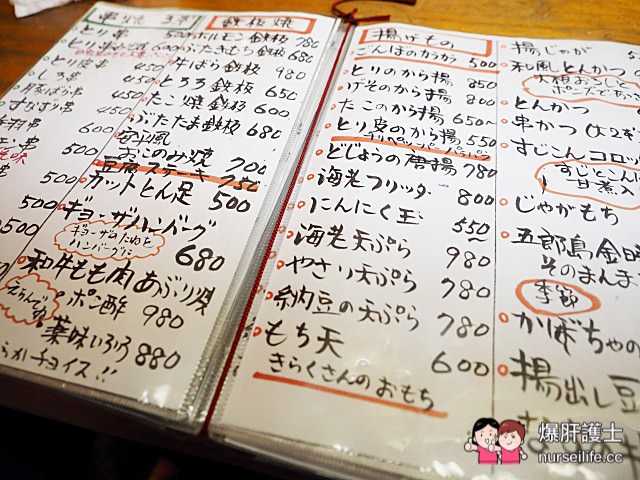 串り焼 3本
とり串 500
650
とり皮串 450
しろ串 450
450
すなぎり串 450
600
500
500
500
鉄板焼
ホルモン鉄板 780
ぶたきもち鉄板 680
牛ばら鉄板 980
とろろ鉄板 650
たこ焼鉄板 600
ぶたたま鉄板 680
安江風
おこのみ焼 700
豆腐ステーキ 750
カットとん足 500
ギョーザハンバーグ 680
ギョーザのたねを
ハンバーグに
和牛もも肉あぶり焼
えらんでね
ポン酢 980
薬味いろいろ 880
らかチョイス!!
揚げもの
ごんぼのからから 500
とりのから揚 850
げそのから揚 800
たこのから揚 650〜
とり皮のから揚 550
どじょうの唐揚 780
海老フリッター 800
にんにく玉 550〜
海老天ぷら 980
やさい天ぷら 780
納豆の天ぷら 780
もち天 600
きらくさんのおもち
揚じゃが
和風とんかつ
大根おろしと
ポン酢で
とんかつ
串かつ (大2本)
すじこんコロッケ
すじとこんにゃく
甘煮入
じゃがもち
五郎島金時
そのまんま
季節
かぼちゃの
揚出し豆
爆肝護士
nurseilife.cc